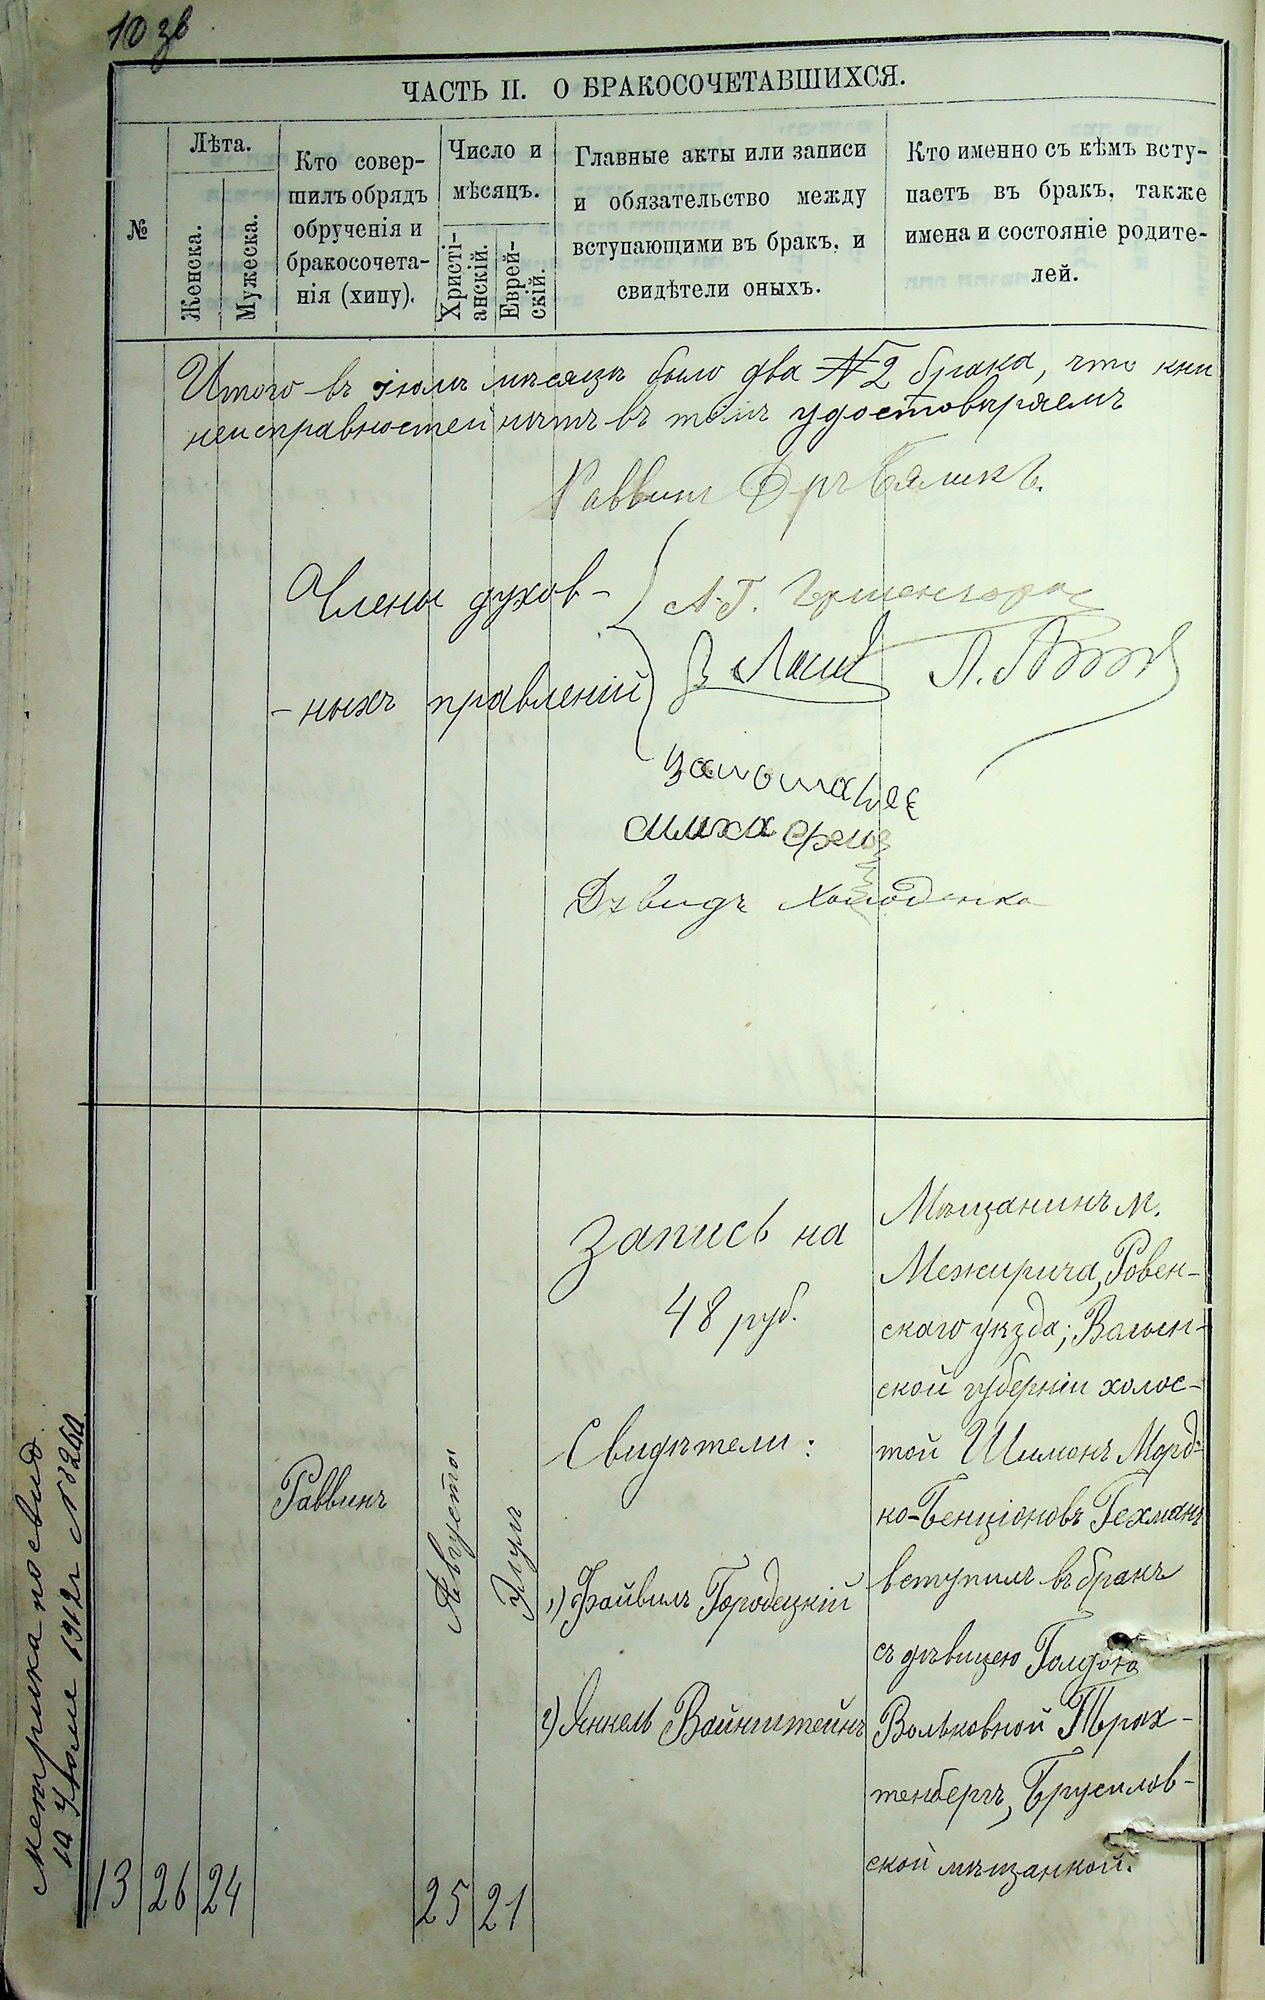 10 зв
ЧАСТЬ II. О БРАКОСОЧЕТАВШИХСЯ.
№
Лѣта.
Женска.
Мужеска.
Кто совер-
шилъ обрядъ
обрученія и
бракосочета-
нія (хипу).
Число и
мѣсяцъ.
Христі-
анскій.
Еврей-
скій.
Главные акты или записи
и обязательство между
вступающими въ бракъ, и
свидѣтели оныхъ.
Кто именно съ кѣмъ всту-
паетъ въ бракъ, также
имена и состояніе родите-
лей.
Итого въ іюлѣ мѣсяцѣ было два №2 брака, что
неисправностей нѣтъ въ томъ удостовѣряемъ
Раввинъ
Члены духов-
-ныхъ правленій
А.Г.
Давидъ Холоденко
Метрика посвид.
10 Іюля 1912 г. № 3260
13
26
24
Раввинъ
Августа
25
Элулъ
21
Запись на
48 руб.
Свидѣтели:
1) Файвилъ Городецкій
2) Янкель Вайнштейнъ
Мѣщанинъ м.
Межирича, Ровен-
скаго уѣзда, Волын-
ской губерніи холос-
той Шименъ Морд-
ко-Бенціоновъ Гехманъ
вступилъ въ бракъ
съ дѣвицею Голдою
Вольковной Трах-
тенбергъ, Брусилов-
ской мѣщанкой.